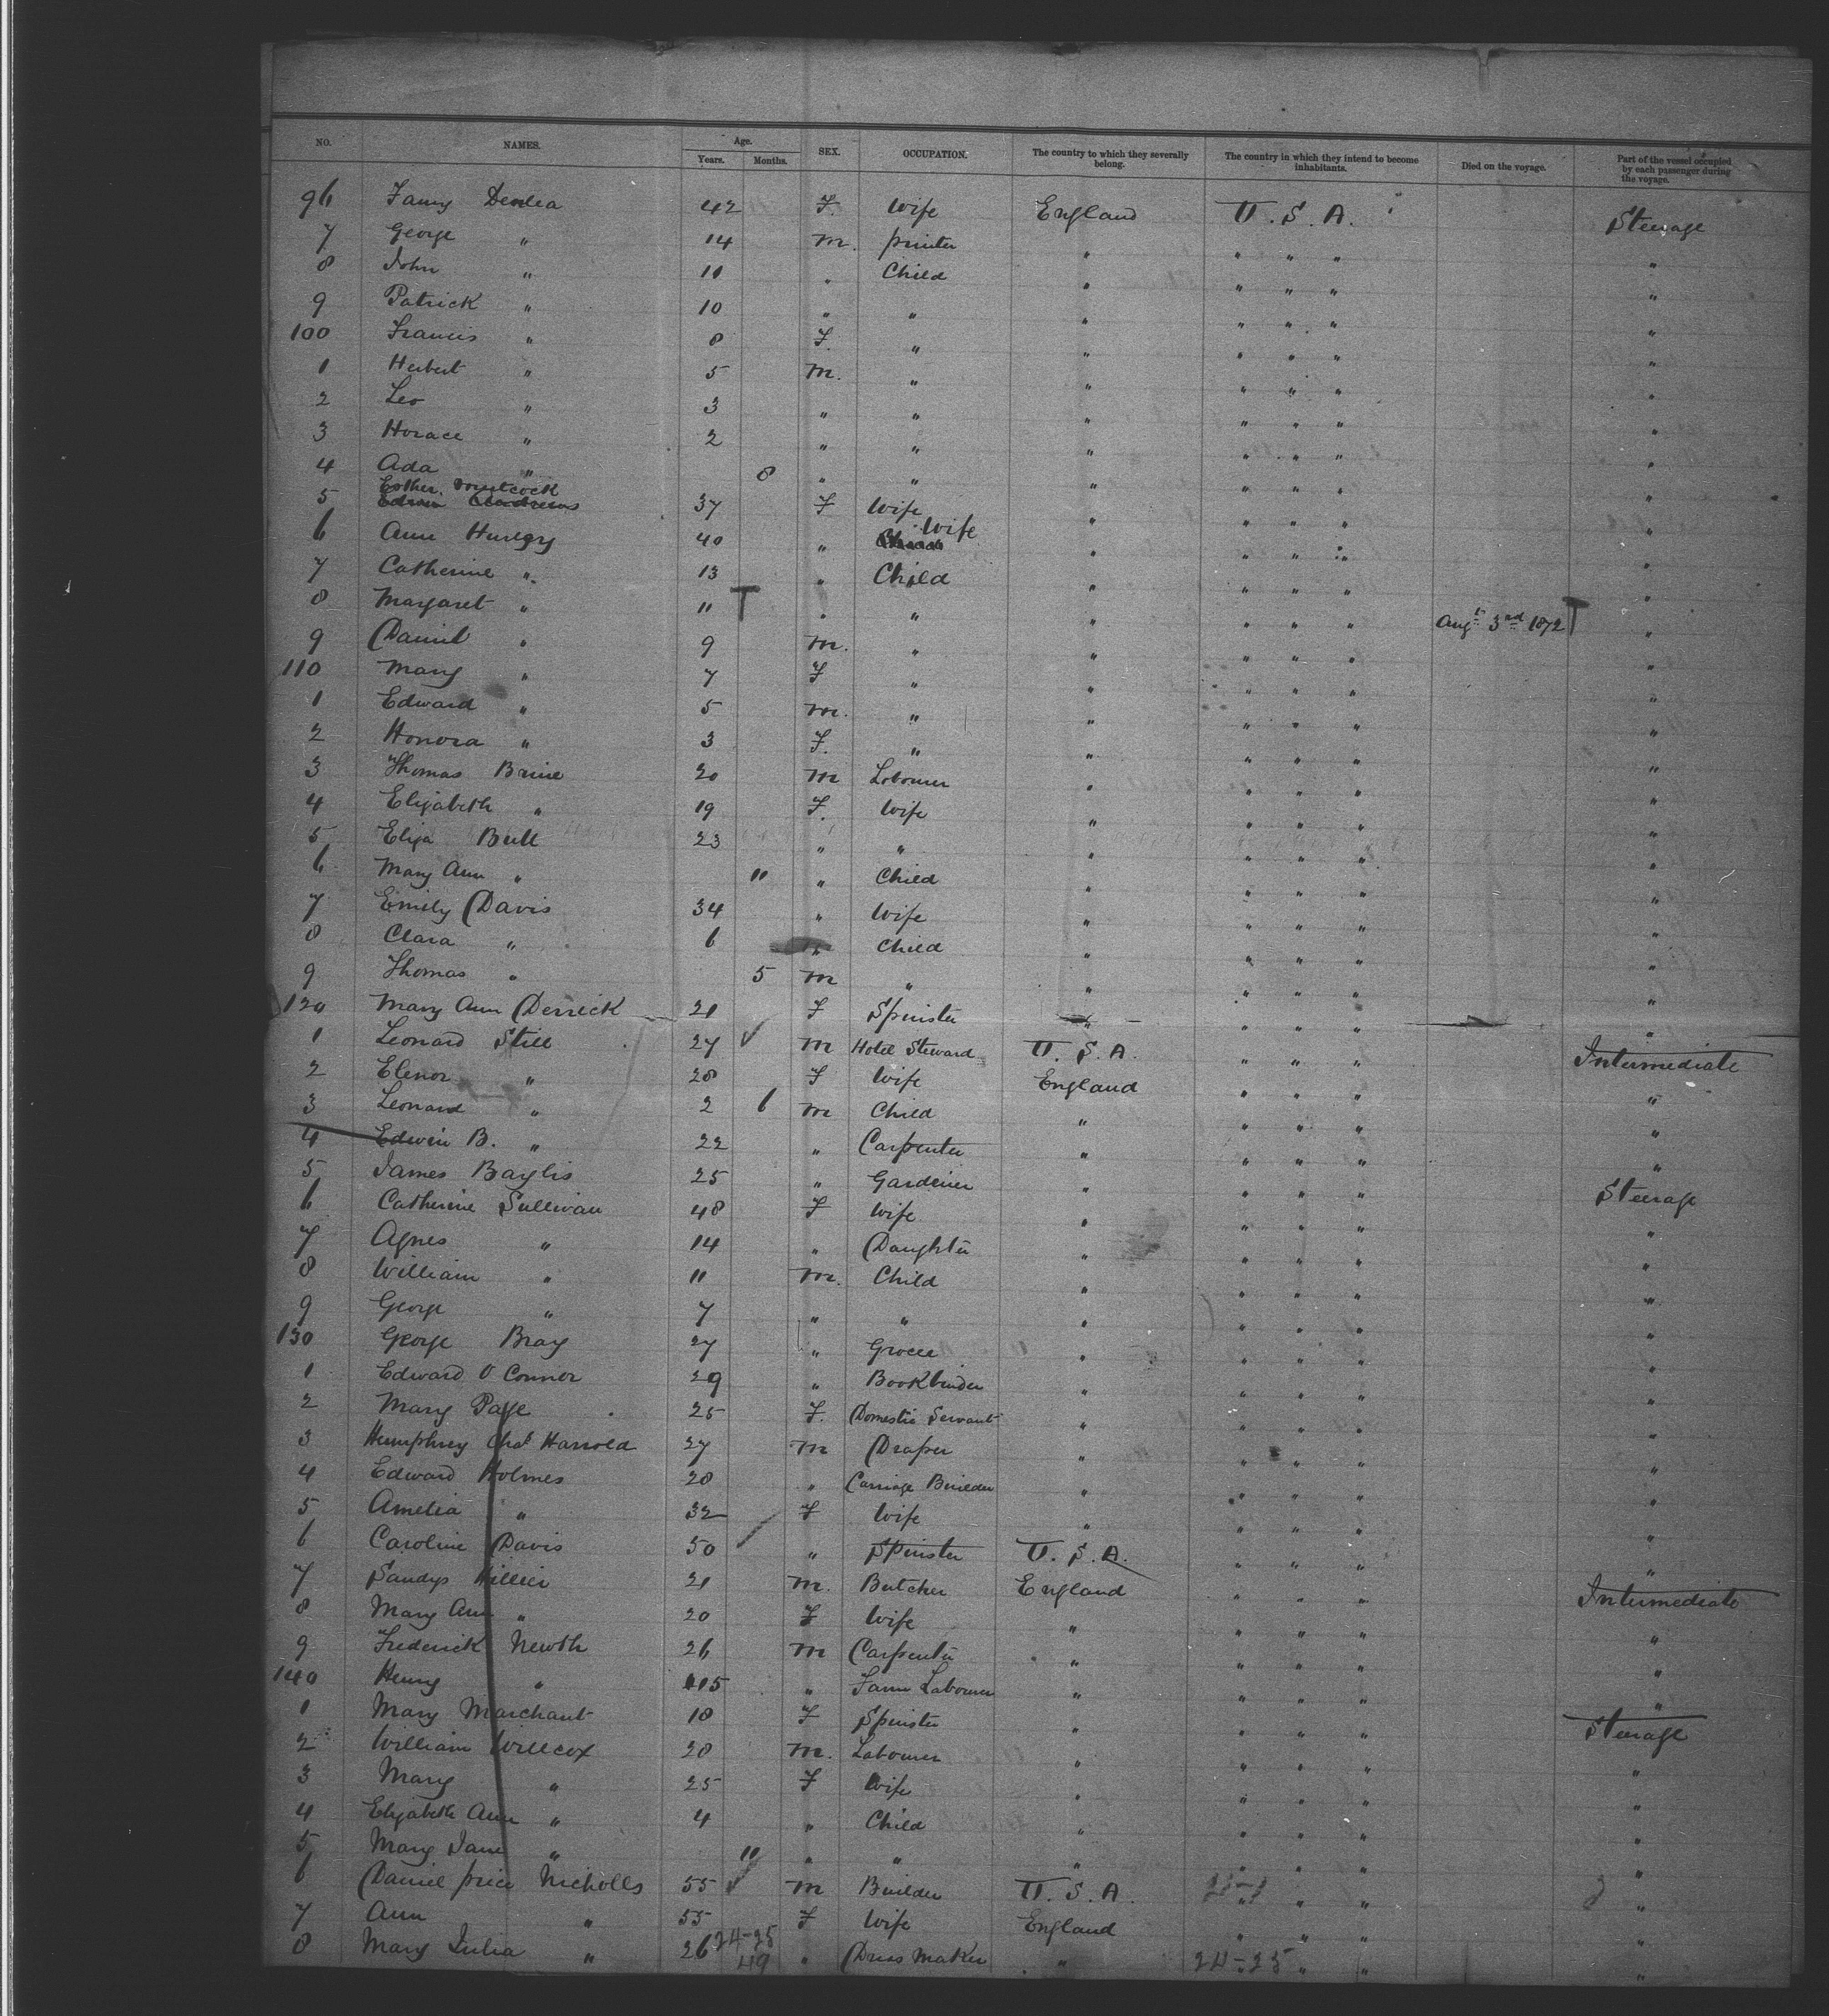 NO. NAMES. Age. Years. Months. SEX. OCCUPATION. The country to which they severally belong. The country in which they intend to become inhabitants. Died on the voyage. Part of the vessel occupied by each passenger during the voyage.
96 Fanny 42 F. Wife England U.S.A. Steerage
7 George " 14 M. printer " " " " "
8 John " 11 " Child " " " " "
9 Patrick " 10 " " " " " " "
100 Francis " 8 F. " " " " " "
1 Herbert " 5 M. " " " " " "
2 Leo " 3 " " " " " " "
3 Horace " 2 " " " " " " "
4 Ada " 8 " " " " " " "
5 Esther 37 F Wife " " " " "
6 Ann 40 " Wife " " " " "
7 Catherine " 13 " Child " " " " "
8 Margaret " 11 " " " " " " Augt 3rd 1872 "
9 Daniel " 9 M. " " " " " "
110 Mary " 7 F " " " " " "
1 Edward " 5 M. " " " " " "
2 Honora " 3 F. " " " " " "
3 Thomas Brine 20 M Labourer " " " " "
4 Elizabeth " 19 F. Wife " " " " "
5 Eliza Bull 23 " " " " " " "
6 Mary Ann " 11 " Child " " " " "
7 Emily Davis 34 " Wife " " " " "
8 Clara " 6 " Child " " " " "
9 Thomas " 5 M " " " " " "
120 Mary Ann Derrick 21 F Spinster " " " " "
1 Leonard Still 27 M Hotel Steward U.S.A. " " " Intermediate
2 Elenor " 28 F Wife England " " " "
3 Leonard " 2 6 M Child " " " " "
4 Edwin B. " 22 " Carpenter " " " " "
5 James Baylis 25 " Gardener " " " " Steerage
6 Catherine Sullivan 48 F Wife " " " " "
7 Agnes " 14 " Daughter " " " " "
8 William " 11 M. Child " " " " "
9 George " 7 " " " " " " "
130 George Bray 27 " Grocer " " " " "
1 Edward O Connor 29 " Bookbinder " " " " "
2 Mary Page 25 F. Domestic Servant " " " " "
3 Humphrey Chas Harrold 27 M Draper " " " " "
4 Edward Holmes 28 " Carriage Builder " " " " "
5 Amelia " 32 F Wife " " " " "
6 Caroline Davis 50 " Spinster U.S.A. " " " "
7 Sandys Hillier 21 M. Butcher England " " " Intermediate
8 Mary Ann " 20 F Wife " " " " "
9 Frederick Newth 26 M Carpenter " " " " "
140 Henry " 15 " Farm Labourer " " " " "
1 Mary Marchant 18 F Spinster " " " " Steerage
2 William Willcox 28 M. Labourer " " " " "
3 Mary " 25 F Wife " " " " "
4 Elizabeth Ann " 4 " Child " " " " "
5 Mary Jane " 11 " " " " " " "
6 Daniel price Nicholls 55 M Builder U.S.A. " " " "
7 Ann " 55 F Wife England " " " "
8 Mary Julia " 26 24-25 49 " Dress Maker " 24-25 " " "